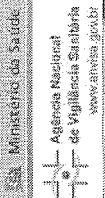 Ministério da Saúde
Agência Nacional
de Vigilância Sanitária
www.anvisa.gov.br